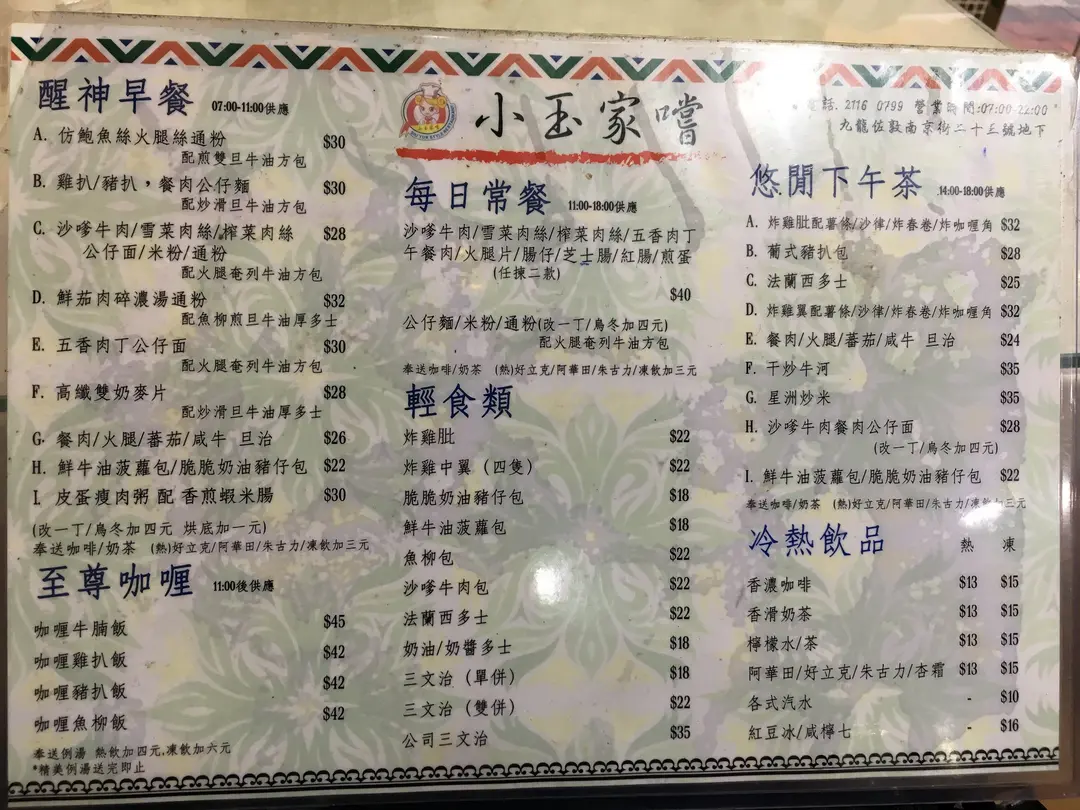 小玉家嚐
電話. 2116 0799 營業時間:07:00-22:00
九龍佐敦南京街二十三號地下
醒神早餐 07:00-11:00供應
A. 仿鮑魚絲火腿絲通粉 $30
配煎雙旦牛油方包
B. 雞扒/豬扒，餐肉公仔麵 $30
配炒滑旦牛油方包
C. 沙嗲牛肉/雪菜肉絲/榨菜肉絲 $28
公仔面/米粉/通粉
配火腿奄列牛油方包
D. 鮮茄肉碎濃湯通粉 $32
配魚柳煎旦牛油厚多士
E. 五香肉丁公仔面 $30
配火腿奄列牛油方包
F. 高纖雙奶麥片 $28
配炒滑旦牛油厚多士
G. 餐肉/火腿/蕃茄/咸牛 旦治 $26
H. 鮮牛油菠蘿包/脆脆奶油豬仔包 $22
I. 皮蛋瘦肉粥 配 香煎蝦米腸 $30
(改一丁/烏冬加四元 烘底加一元)
奉送咖啡/奶茶 (熱)好立克/阿華田/朱古力/凍飲加三元
至尊咖喱 11:00後供應
咖喱牛腩飯 $45
咖喱雞扒飯 $42
咖喱豬扒飯 $42
咖喱魚柳飯 $42
奉送例湯 熱飲加四元,凍飲加六元
*精美例湯送完即止
每日常餐 11:00-18:00供應
沙嗲牛肉/雪菜肉絲/榨菜肉絲/五香肉丁
午餐肉/火腿片/腸仔/芝士腸/紅腸/煎蛋
(任揀二款)
$40
公仔麵/米粉/通粉(改一丁/烏冬加四元)
配火腿奄列牛油方包
奉送咖啡/奶茶 (熱)好立克/阿華田/朱古力/凍飲加三元
輕食類
炸雞肶 $22
炸雞中翼（四隻） $22
脆脆奶油豬仔包 $18
鮮牛油菠蘿包 $18
魚柳包 $22
沙嗲牛肉包 $22
法蘭西多士 $22
奶油/奶醬多士 $18
三文治（單併） $18
三文治（雙併） $22
公司三文治 $35
悠閒下午茶 14:00-18:00供應
A. 炸雞肶配薯條/沙律/炸春卷/炸咖喱角 $32
B. 葡式豬扒包 $28
C. 法蘭西多士 $25
D. 炸雞翼配薯條/沙律/炸春卷/炸咖喱角 $32
E. 餐肉/火腿/蕃茄/咸牛 旦治 $24
F. 干炒牛河 $35
G. 星洲炒米 $35
H. 沙嗲牛肉餐肉公仔面 $28
(改一丁/烏冬加四元)
I. 鮮牛油菠蘿包/脆脆奶油豬仔包 $22
奉送咖啡/奶茶 (熱)好立克/阿華田/朱古力/凍飲加三元
冷熱飲品 熱 凍
香濃咖啡 $13 $15
香滑奶茶 $13 $15
檸檬水/茶 $13 $15
阿華田/好立克/朱古力/杏霜 $13 $15
各式汽水 - $10
紅豆冰/咸檸七 - $16